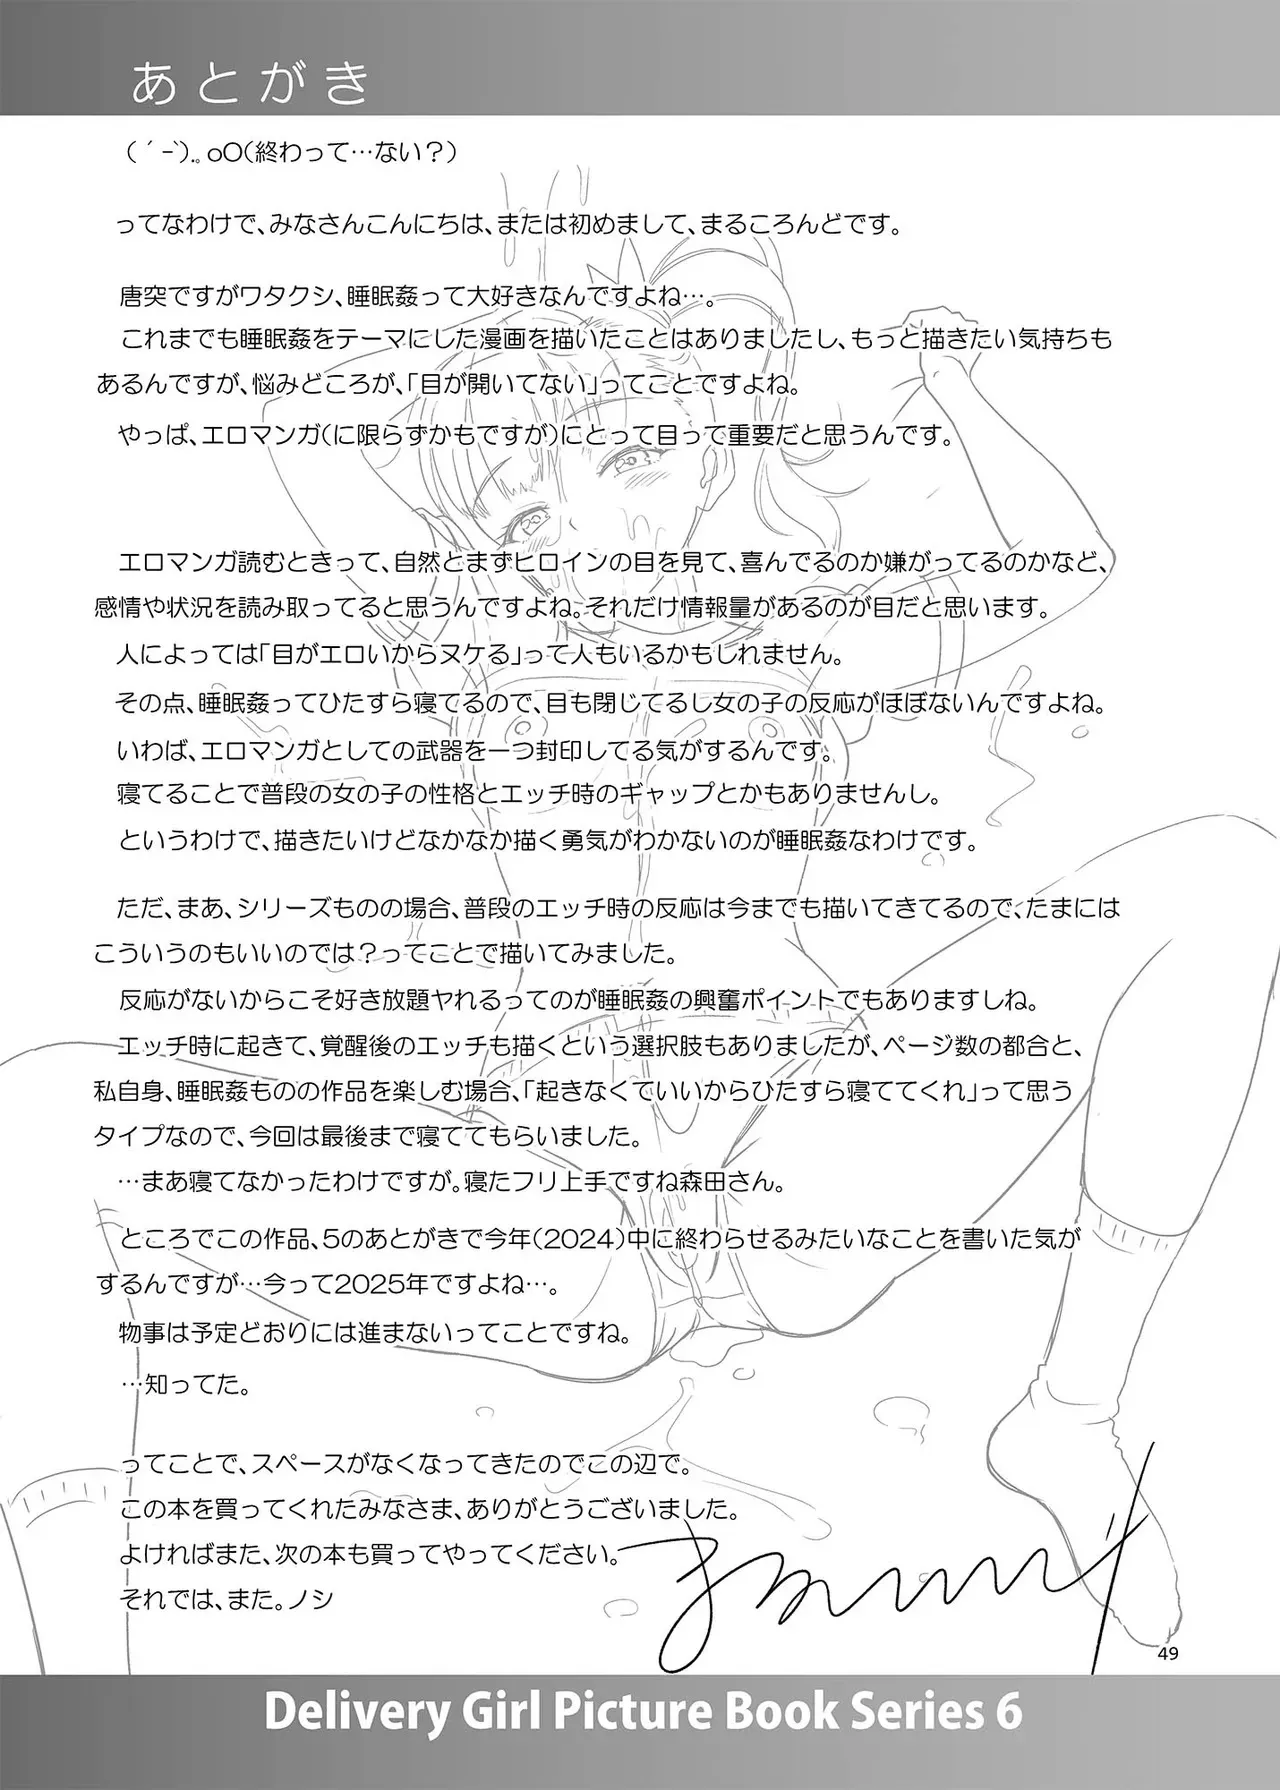 あとがき
( ´ -`).｡oO(終わって…ない？)
ってなわけで、みなさんこんにちは、または初めまして、まるころんどです。
唐突ですがワタクシ、睡眠姦って大好きなんですよね…。
これまでも睡眠姦をテーマにした漫画を描いたことはありましたし、もっと描きたい気持ちも
あるんですが、悩みどころが、「目が開いてない」ってことですよね。
やっぱ、エロマンガ(に限らずかもですが)にとって目って重要だと思うんです。
エロマンガ読むときって、自然とまずヒロインの目を見て、喜んでるのか嫌がってるのかなど、
感情や状況を読み取ってると思うんですよね。それだけ情報量があるのが目だと思います。
人によっては「目がエロいからヌケる」って人もいるかもしれません。
その点、睡眠姦ってひたすら寝てるので、目も閉じてるし女の子の反応がほぼないんですよね。
いわば、エロマンガとしての武器を一つ封印してる気がするんです。
寝てることで普段の女の子の性格とエッチ時のギャップとかもありませんし。
というわけで、描きたいけどなかなか描く勇気がわかないのが睡眠姦なわけです。
ただ、まあ、シリーズものの場合、普段のエッチ時の反応は今までも描いてきてるので、たまには
こういうのもいいのでは？ってことで描いてみました。
反応がないからこそ好き放題ヤれるってのが睡眠姦の興奮ポイントでもありますしね。
エッチ時に起きて、覚醒後のエッチも描くという選択肢もありましたが、ページ数の都合と、
私自身、睡眠姦ものの作品を楽しむ場合、「起きなくていいからひたすら寝ててくれ」って思う
タイプなので、今回は最後まで寝ててもらいました。
…まあ寝てなかったわけですが。寝たフリ上手ですね森田さん。
ところでこの作品、5のあとがきで今年(2024)中に終わらせるみたいなことを書いた気が
するんですが…今って2025年ですよね…。
物事は予定どおりには進まないってことですね。
…知ってた。
ってことで、スペースがなくなってきたのでこの辺で。
この本を買ってくれたみなさま、ありがとうございました。
よければまた、次の本も買ってやってください。
それでは、また。ノシ
49
Delivery Girl Picture Book Series 6